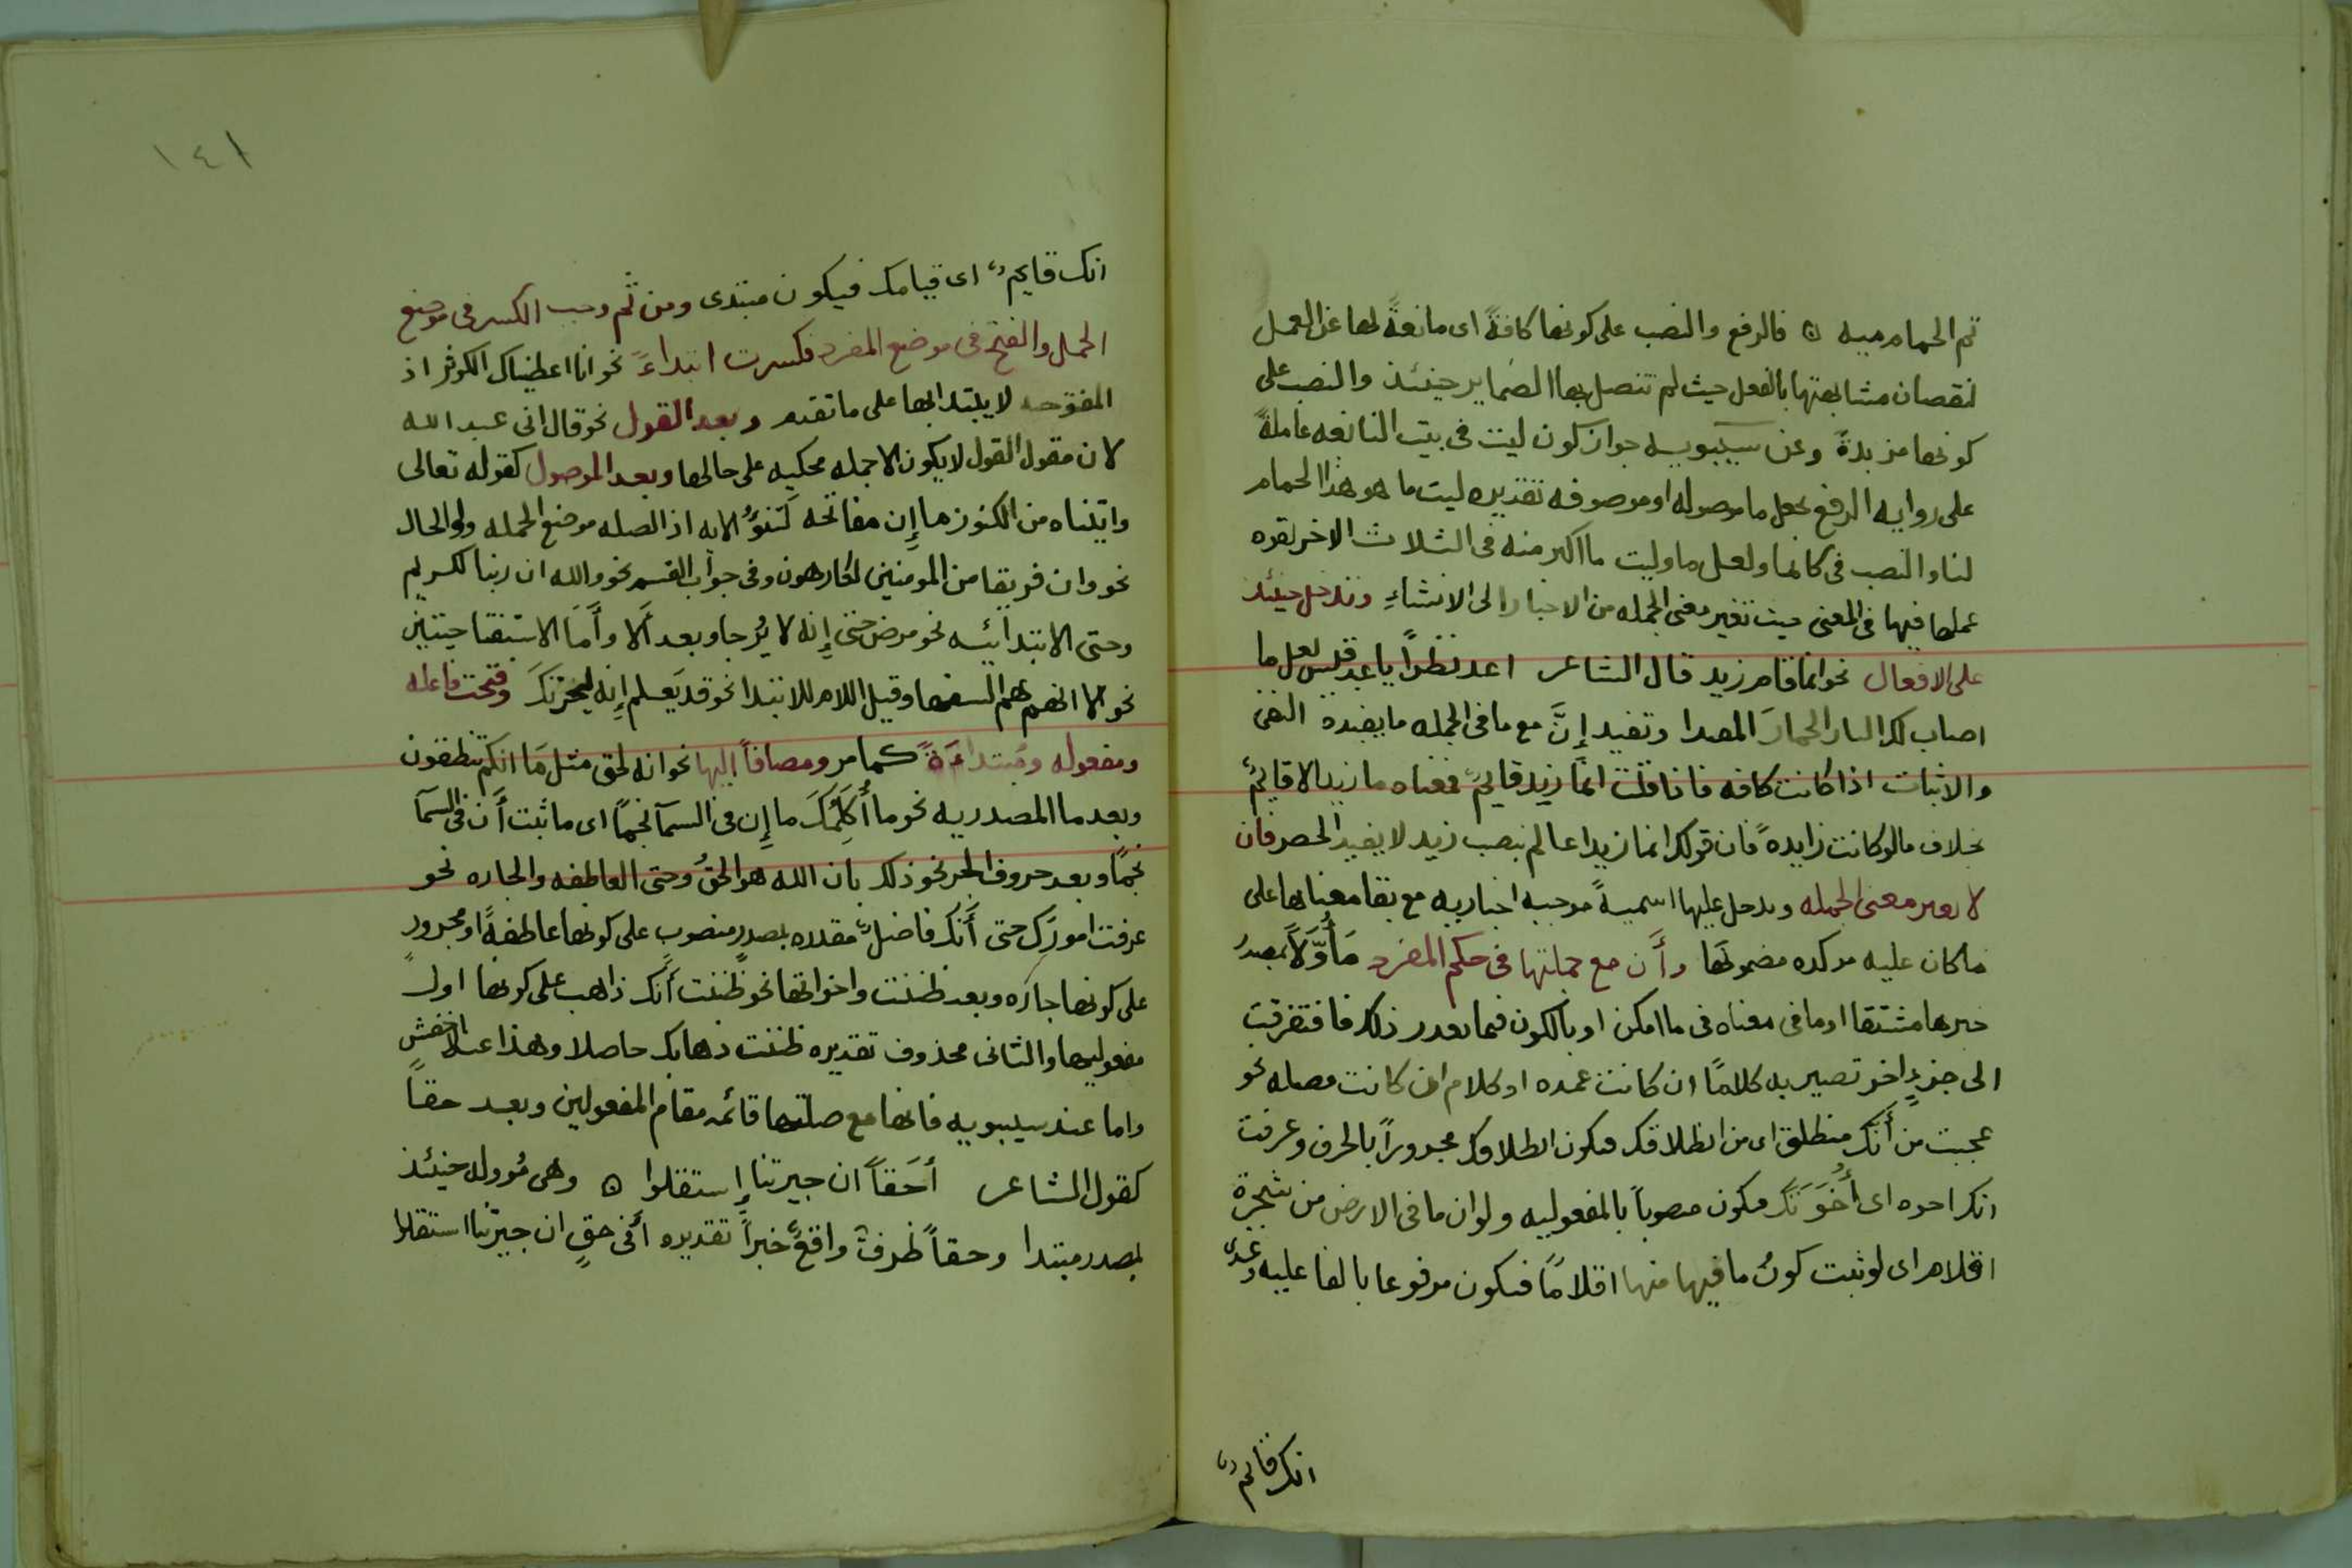 تم الحمام ميه ۞ فالرفع والنصب على كونها كافةً اى مانعةً لها عن العمل
لنقصان مشابهتها بالفعل حيث لم تتصل بها الضماير حينئذ والنصب على
كونها مزيدةً وعن سيبويه جواز كون ليت فى بيت النابغه عاملةً
على روايه الرفع بجعل ما موصوله او موصوفه تقديره ليت ما هو هذا الحمام
لنا والنصب فى كانما ولعل ما وليت ما اكثر منه فى الثلاث الاخر لقوه
عملها فيها فى المعنى حيث تغير معنى الجمله من الاخبار الى الانشاءِ وتدخل حينئذ
على الافعال نحو انما قام زيد قال الشاعر اعد نظراً يا عبد قيس لعل ما
اصاب لك النار الحمارَ المقيدا وتفيد إنَّ مع ما فى الجمله ما يفيده النفى
والاثبات اذا كانت كافه فاذا قلت انما زيد قايمٌ فمعناه ما زيد الا قايمٌ
بخلاف ما لو كانت زايدةً فان قولك انما زيدا عالم بنصب زيد لا يفيد الحصر فان
لا تغير معنى الجمله وتدخل عليها اسميةً موجبه اخباريه مع بقا معناها على
ما كان عليه موكده مضمونها وأَن مع جملتها فى حكم المفرد مَأوَّلاً بمصدر
خبرها مشتقا او ما فى معناه فى ما امكن او بالكون فيما تعذر ذلك فافتقرت
الى جزءٍ اخر تصير به كلامًا ان كانت عمده او كلام ان كانت فضله نحو
عجبت من أنك منطلق اى من انطلاقك فيكون انطلاقك مجروراً بالحرف وعرفت
انك اخوه اى أُخُوَتَك فيكون منصوباً بالمفعوليه ولو ان ما فى الارض من شجرة
اقلام اى لو ثبت كونُ ما فيها منها اقلامًا فيكون مرفوعا بالفاعليه وعندى
انك قايمٌ
١٤١
انك قايمٌ اى قيامك فيكون مبتدى ومن ثم وجب الكسر فى موضع
الجمل والفتح فى موضع المفرد فكسرت ابتداءً نحو انا اعطيناك الكوثر اذ
المفتوحه لا يبتدا بها على ما تقدم وبعد القول نحو قال انى عبد الله
لان مقول القول لا يكون الا جمله محكيه على حالها وبعد الموصول كقوله تعالى
واتيناه من الكنوز ما إِن مفاتحه لَتنؤُ الايه اذ الصله موضع الجمله ولو الحال
نحو وان فريقا من المومنين لكارهون وفى جواب القسم نحو والله ان ربنا لكريم
وحتى الابتدائيه نحو مرض حتى إِنه لا يُرجا وبعد أَلا وأَمَا الاستفتاحيتين
نحو الا انهم هم السفها وقبل اللام للابتدا نحو قد يَعلم إِنه ليحزنكَ وفتحت فاعله
ومفعوله ومُبتداءَةً كما مر ومضافاً اليها نحو انه لحق مثل مَا انكم تنطقون
وبعد ما المصدريه نحو ما أُكَلِّمُكَ ما إِن فى السمآ نجمًا اى ما ثبت أَن فى السمآ
نجمًا وبعد حروف الجر نحو ذلك بان الله هو الحقُ وحتى العاطفه والجاره نحو
عرفت امورَك حتى أَنك فاضلٌ مقدره بمصدر منصوبٍ على كونها عاطفةً او مجرورٍ
على كونها جاره وبعد ظننت واخواتها نحو ظننت أَنك ذاهب على كونها اول
مفعوليها والثانى محذوف تقديره ظننت ذهابك حاصلا وهذا عند الاخفش
واما عند سيبويه فانها مع صلتها قائمه مقام المفعولين وبعد حقاً
كقول الشاعر أحَقاً ان جيرتنا إستقلوا ۞ وهى مُووله حينئذ
بمصدر مبتدا وحقاً ظرفٌ واقعٌ خبراً تقديره أفى حقٍ ان جيرتنا استقلوا